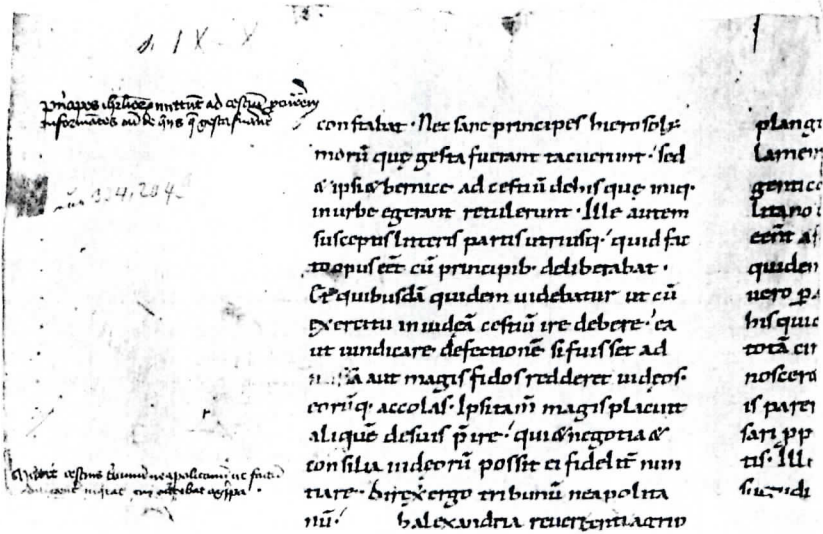 IX X
principes ihrl'me mittunt ad cestiū
informātes eū de hiis q̄ gesta fuerūt
constabat · Nec sane principes hierosoly
morū quę gesta fuerant tacuerunt · sed
& ipsi & bernice ad cestiū de his quę iniq·
in urbe egerant retulerunt · Ille autem
susceptis litteris partis utriusq· quid fac
to opus eēt cū principib· deliberabat ·
Et quibusdā quidem uidebatur ut cū
exercitu in iudeā cestiū ire debere · ea
ut uindicare defectionē si fuisset ad
aut magis fidos redderet iudeos ·
eorūq· accolas · Ipsi tam̄ magis placuit
aliquē de suis p̄ire · qui & negotia &
consilia iudeorū possit ei fidelit̄ nun
tiare · Direx ergo tribunū neapolita
nū · h alexandria reuertenti agrip
cestius tribunū neapolitanū
plangu
lamen
gentic
litano
eēnt a
quidem
uero
his quic
totā cir
noscere
is paren
sari pp
tis · Ille